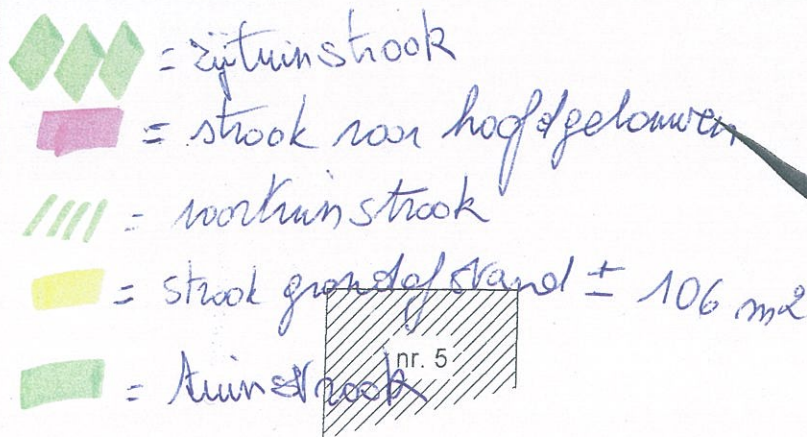 = zijtuinstrook
= strook voor hoofdgebouwen
= voortuinstrook
= strook grondafstand ± 106 m2
nr. 5
= tuinstrook